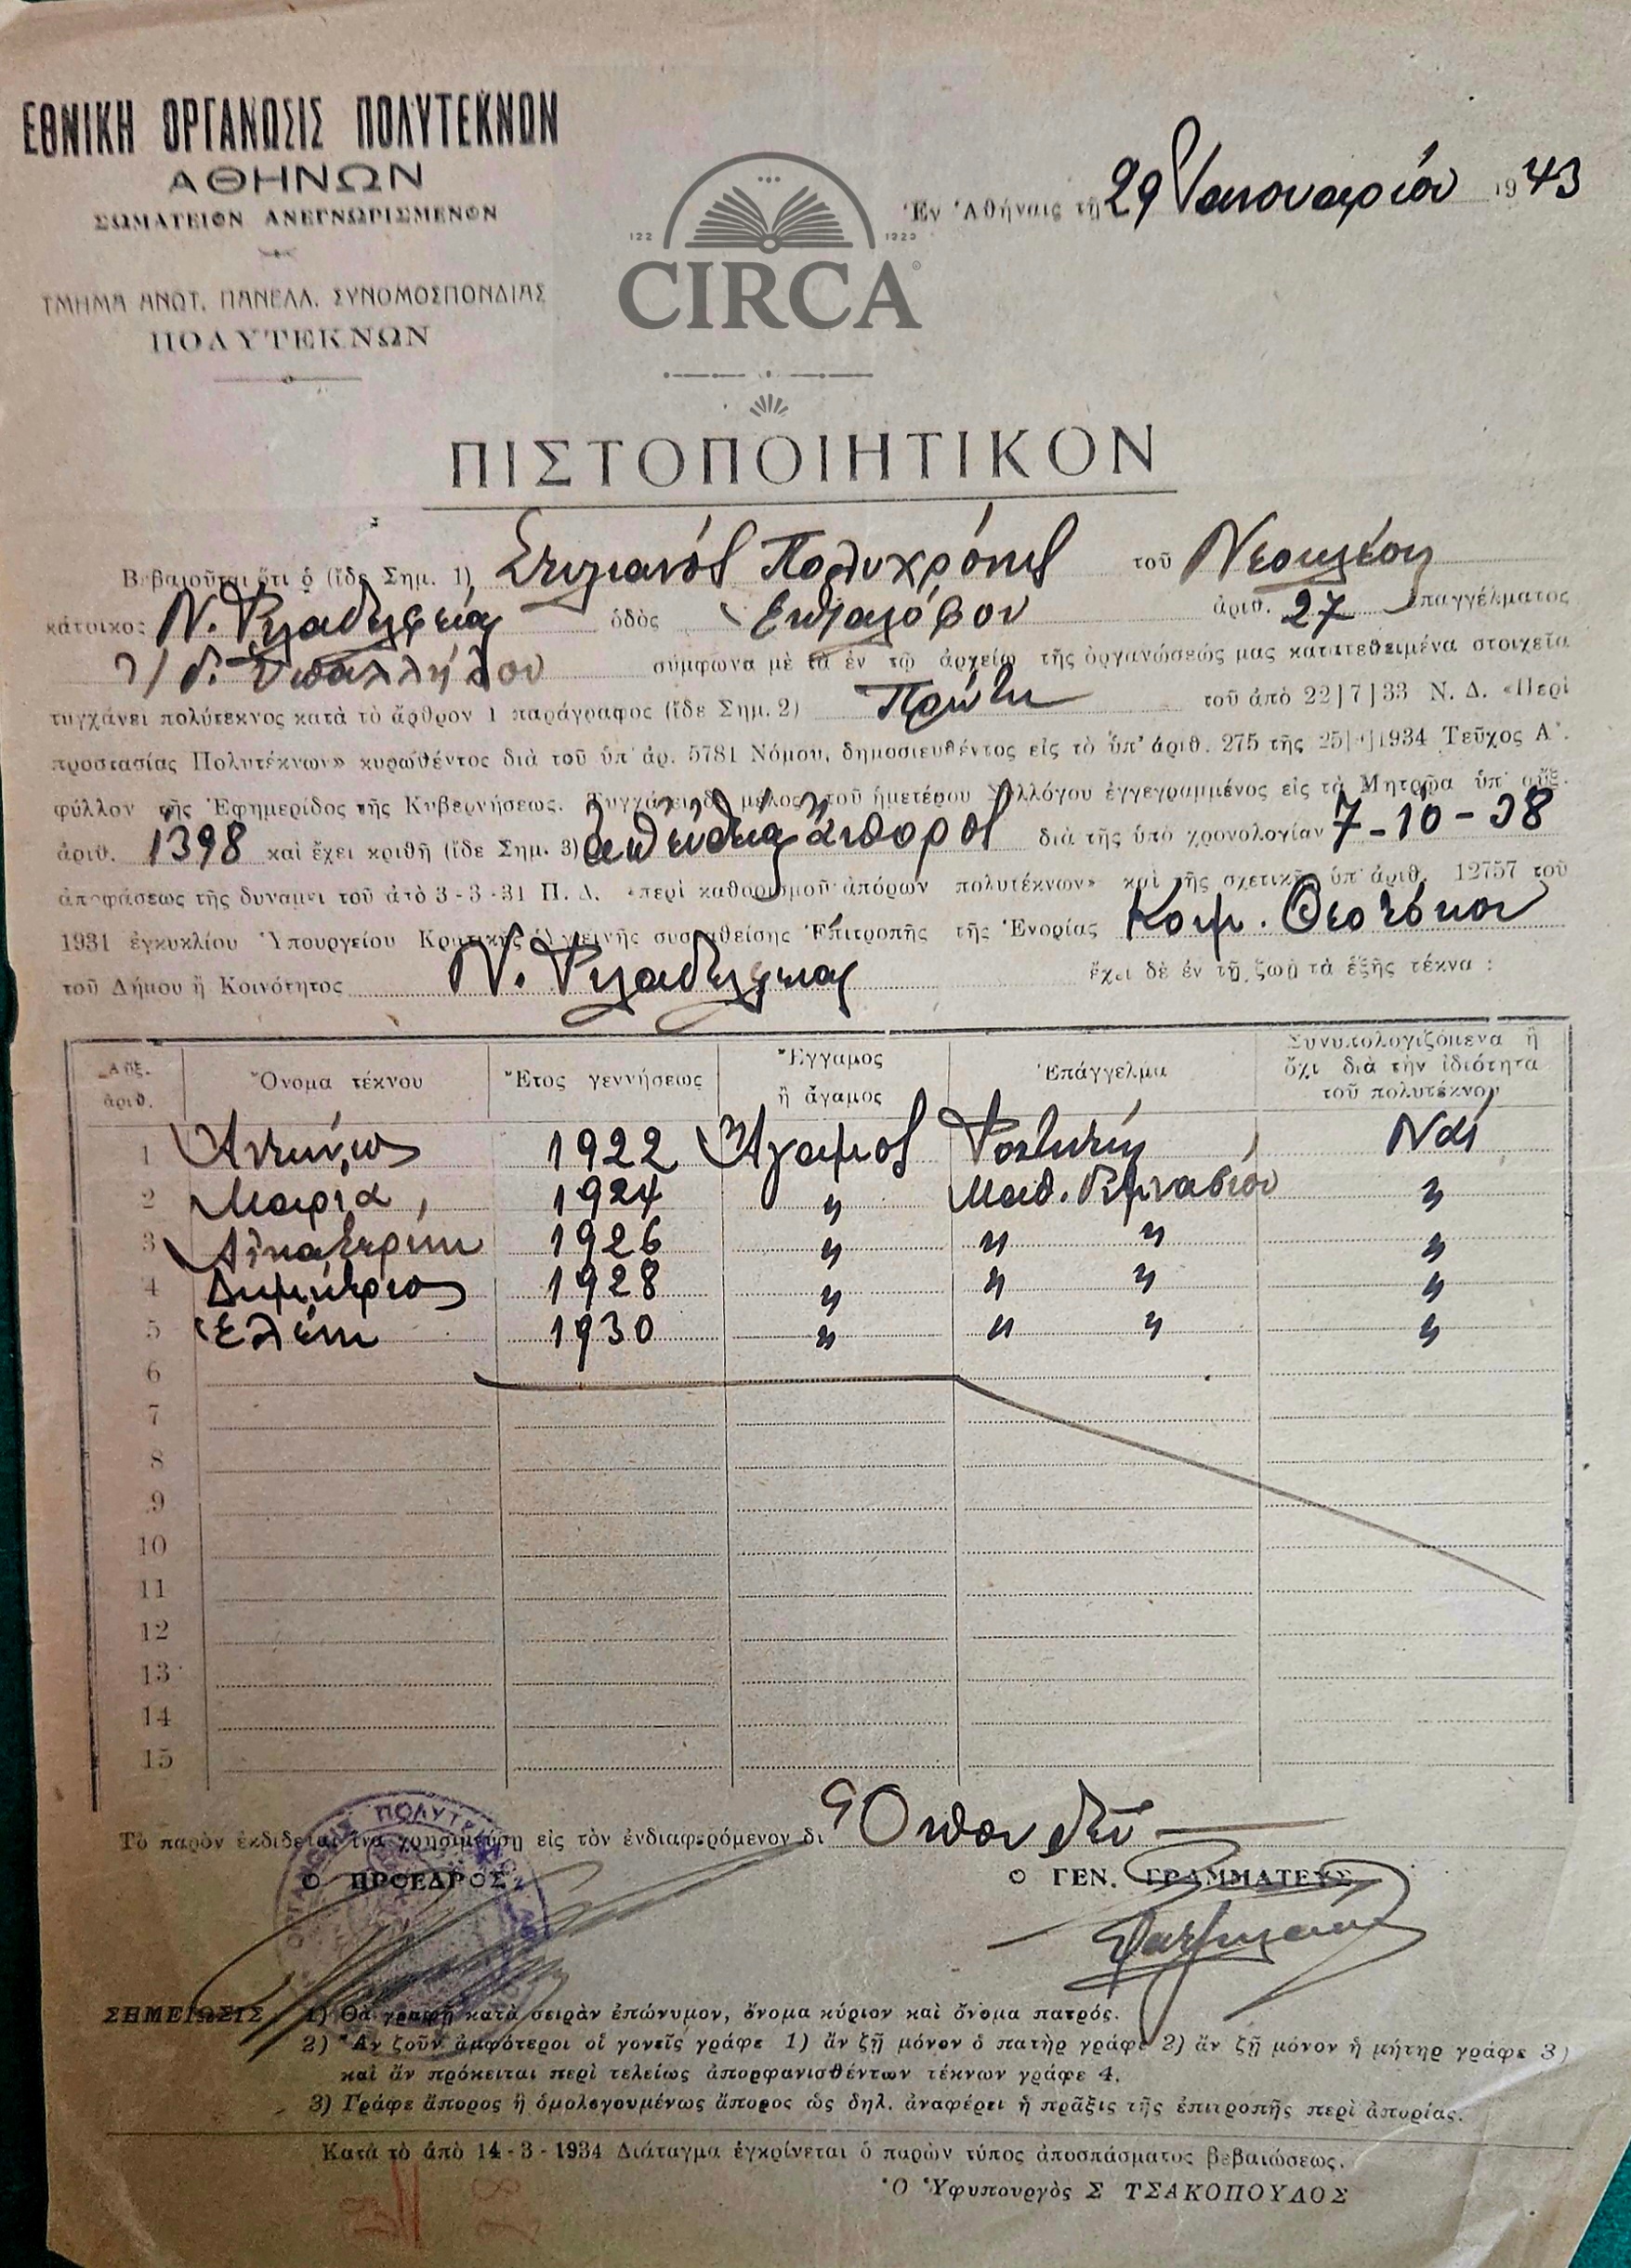 ΕΘΝΙΚΗ ΟΡΓΑΝΩΣΙΣ ΠΟΛΥΤΕΚΝΩΝ
ΑΘΗΝΩΝ
ΣΩΜΑΤΕΙΟΝ ΑΝΕΓΝΩΡΙΣΜΕΝΟΝ
ΤΜΗΜΑ ΑΝΩΤ. ΠΑΝΕΛΛ. ΣΥΝΟΜΟΣΠΟΝΔΙΑΣ
ΠΟΛΥΤΕΚΝΩΝ
Ἐν Ἀθήναις τῇ 29 Ἰανουαρίου 1943
122 1923
CIRCA
ΠΙΣΤΟΠΟΙΗΤΙΚΟΝ
Βεβαιοῦται ὅτι ὁ (ἴδε Σημ. 1) Στυλιανός Πολυχρόνης τοῦ Νεοκλέους
κάτοικος Ν. Φιλαδελφείας ὁδὸς ἀριθ. 27 ἐπαγγέλματος
Ὑπαλλήλου σύμφωνα μὲ τὰ ἐν τῷ ἀρχείῳ τῆς ὀργανώσεώς μας κατατεθειμένα στοιχεῖα
τυγχάνει πολύτεκνος κατὰ τὸ ἄρθρον 1 παράγραφος (ἴδε Σημ. 2) Πρώτη τοῦ ἀπὸ 22]7]33 Ν. Δ. «Περὶ
προστασίας Πολυτέκνων» κυρωθέντος διὰ τοῦ ὑπ' ἀρ. 5781 Νόμου, δημοσιευθέντος εἰς τὸ ὑπ' ἀριθ. 275 τῆς 1934 Τεῦχος Α'.
φύλλον τῆς Ἐφημερίδος τῆς Κυβερνήσεως. Τυγχάνει δὲ μέλος τοῦ ἡμετέρου Συλλόγου ἐγγεγραμμένος εἰς τὰ Μητρῷα ὑπ' αὔξ.
ἀριθ. 1398 καὶ ἔχει κριθῆ (ἴδε Σημ. 3) ἄπορος διὰ τῆς ὑπὸ χρονολογίαν 7-10-38
ἀποφάσεως τῆς δυνάμει τοῦ ἀπὸ 3-3-31 Π. Δ. «περὶ καθορισμοῦ ἀπόρων πολυτέκνων» καὶ τῆς σχετικῆς ὑπ' ἀριθ. 12757 τοῦ
1931 ἐγκυκλίου Ὑπουργείου Κρατικῆς Ὑγιεινῆς συσταθείσης Ἐπιτροπῆς τῆς Ἐνορίας Κοιμ. Θεοτόκου
τοῦ Δήμου ἢ Κοινότητος Ν. Φιλαδελφείας ἔχει δὲ ἐν τῇ ζωῇ τὰ ἑξῆς τέκνα :
Αὔξ. ἀριθ. Ὄνομα τέκνου Ἔτος γεννήσεως Ἔγγαμος ἢ ἄγαμος Ἐπάγγελμα Συνυπολογιζόμενα ἢ ὄχι διὰ τὴν ἰδιότητα τοῦ πολυτέκνου
1 Ἀντώνιος 1922 Ἄγαμος Φοιτητής Ναί
2 Μαρία 1924 " Μαθ. Γυμνασίου "
3 Αἰκατερίνη 1926 " " " "
4 Δημήτριος 1928 " " " "
5 Ἑλένη 1930 " " " "
6
7
8
9
10
11
12
13
14
15
Τὸ παρὸν ἐκδίδεται ἵνα χρησιμεύσῃ εἰς τὸν ἐνδιαφερόμενον δι Ὅπου δεῖ
Ο ΠΡΟΕΔΡΟΣ Ο ΓΕΝ. ΓΡΑΜΜΑΤΕΥΣ
ΣΗΜΕΙΩΣΙΣ 1) Θὰ γραφῇ κατὰ σειρὰν ἐπώνυμον, ὄνομα κύριον καὶ ὄνομα πατρός.
2) Ἂν ζοῦν ἀμφότεροι οἱ γονεῖς γράφε 1) ἂν ζῇ μόνον ὁ πατὴρ γράφε 2) ἂν ζῇ μόνον ἡ μήτηρ γράφε 3)
καὶ ἂν πρόκειται περὶ τελείως ἀπορφανισθέντων τέκνων γράφε 4.
3) Γράφε ἄπορος ἢ ὁμολογουμένως ἄπορος ὡς δηλ. ἀναφέρει ἡ πρᾶξις τῆς ἐπιτροπῆς περὶ ἀπορίας.
Κατὰ τὸ ἀπὸ 14-3-1934 Διάταγμα ἐγκρίνεται ὁ παρὼν τύπος ἀποσπάσματος βεβαιώσεως.
Ὁ Ὑφυπουργὸς Σ ΤΣΑΚΟΠΟΥΛΟΣ